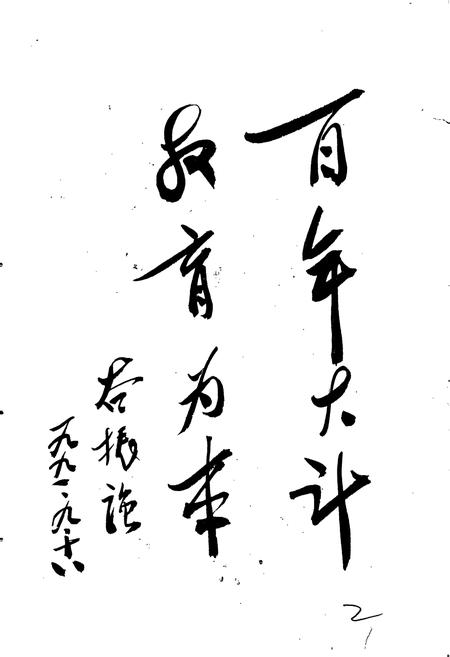 百年大计
教育为本
振
一九九一、九、十八
2